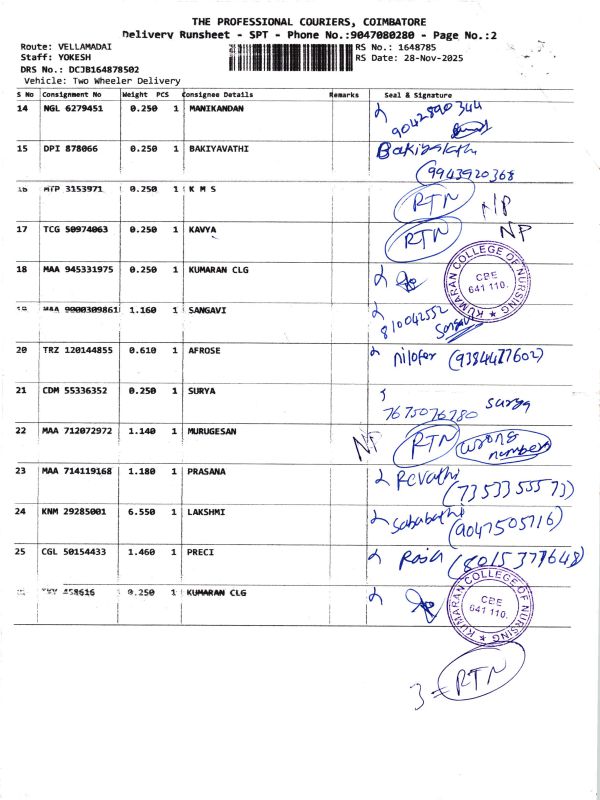 THE PROFESSIONAL COURIERS, COIMBATORE
Delivery Runsheet - SPT - Phone No.:9047080280 - Page No.:2
Route: VELLAMADAI RS No.: 1648785
Staff: YOKESH RS Date: 28-Nov-2025
DRS No.: DCJB164878502
Vehicle: Two Wheeler Delivery
S No Consignment No Weight PCS Consignee Details Remarks Seal & Signature
14 NGL 6279451 0.250 1 MANIKANDAN 9042890344
15 DPI 878066 0.250 1 BAKIYAVATHI
(9943920368
16 MTP 3153971 0.250 1 K M S RTN NP
17 TCG 50974063 0.250 1 KAVYA RTN NP
18 MAA 945331975 0.250 1 KUMARAN CLG
KUMARAN COLLEGE OF NURSING
CBE
641 110.
19 MAA 9000309861 1.160 1 SANGAVI 810042552
20 TRZ 120144855 0.610 1 AFROSE nilofer (9384477602)
21 CDM 55336352 0.250 1 SURYA 7675076780 surya
22 MAA 712072972 1.140 1 MURUGESAN NP RTN wrong number
23 MAA 714119168 1.180 1 PRASANA Revathi
(7353355573)
24 KNM 29285001 6.550 1 LAKSHMI Sababathi
(9047505716)
25 CGL 50154433 1.460 1 PRECI (8015377648)
458616 0.250 1 KUMARAN CLG
KUMARAN COLLEGE OF NURSING
CBE
641 110.
3 = RTN